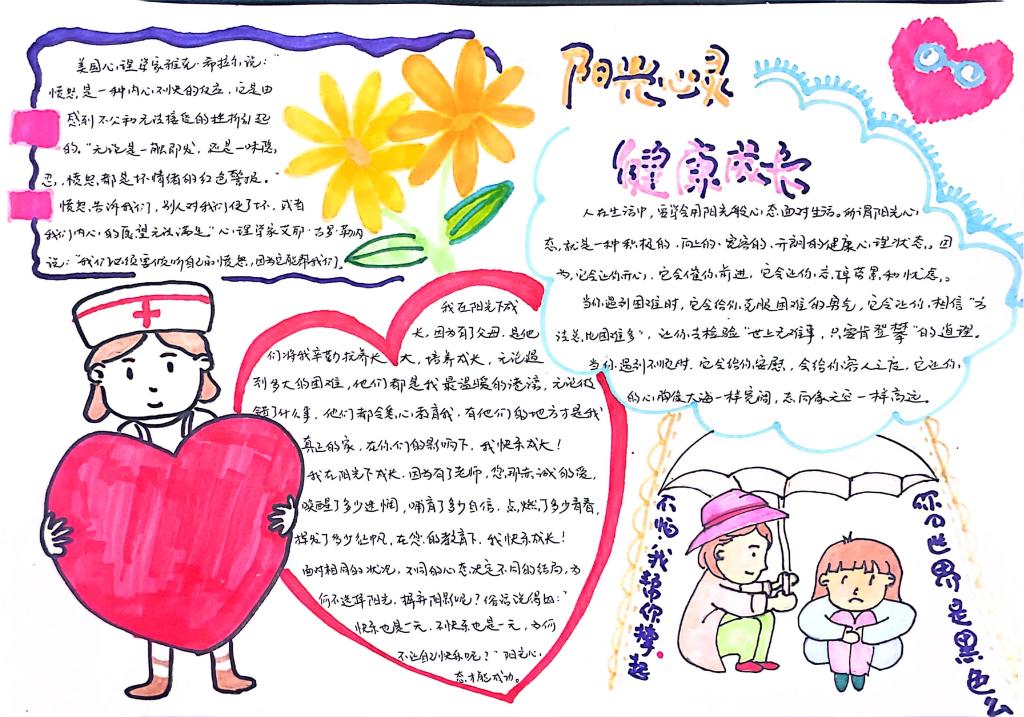 阳光心灵
健康成长
美国心理学家雅克·希拉尔说：“
愤怒是一种内心不快的反应，它是由
感到不公和无法接受的挫折引起
的。”无论是一触即发，还是一味隐
忍，愤怒都是坏情绪的红色警报。“
愤怒告诉我们，别人对我们侵了不，或者
我们内心的愿望无法满足”心理学家艾耶·古罗勒内
说：“我们必须要倾听自己的愤怒，因为它能帮我们。
人在生活中，要学会用阳光般心态面对生活。所谓阳光心
态，就是一种积极的、向上的、宽容的、开朗的健康心理状态。因
为，它会让你开心，它会催你前进，它会让你忘掉劳累和忧虑。
当你遇到困难时，它会给你克服困难的勇气，它会让你相信“方
法总比困难多”，让你去检验“世上无难事，只要肯登攀”的道理。
当你遇到不顺时，它会给你安慰，会给你容人之度，它让你
的心胸像大海一样宽阔，志向像天空一样高远。
我在阳光下成
长，因为有了父母，是他
们将我辛勤抚养长大，培养成长，无论遇
到多大的困难，他们都是我最温暖的港湾，无论我
错了什么事，他们都会悉心教育我，有他们的地方才是我
真正的家，在你们的影响下，我快乐成长！
我在阳光下成长，因为有了老师，您那赤诚的爱，
唤醒了多少迷惘，哺育了多少自信，点燃了多少青春，
挥发了多少征帆，在您的教育下，我快乐成长！
面对相同的状况，不同的心态决定不同的结局，为
何不选择阳光，摒弃阴影呢？俗话说得好：“
快乐也是一天，不快乐也是一天，为何
不让自己快乐呢？”阳光心
态才能成功。
不怕我帮你撑起
你的世界是黑色